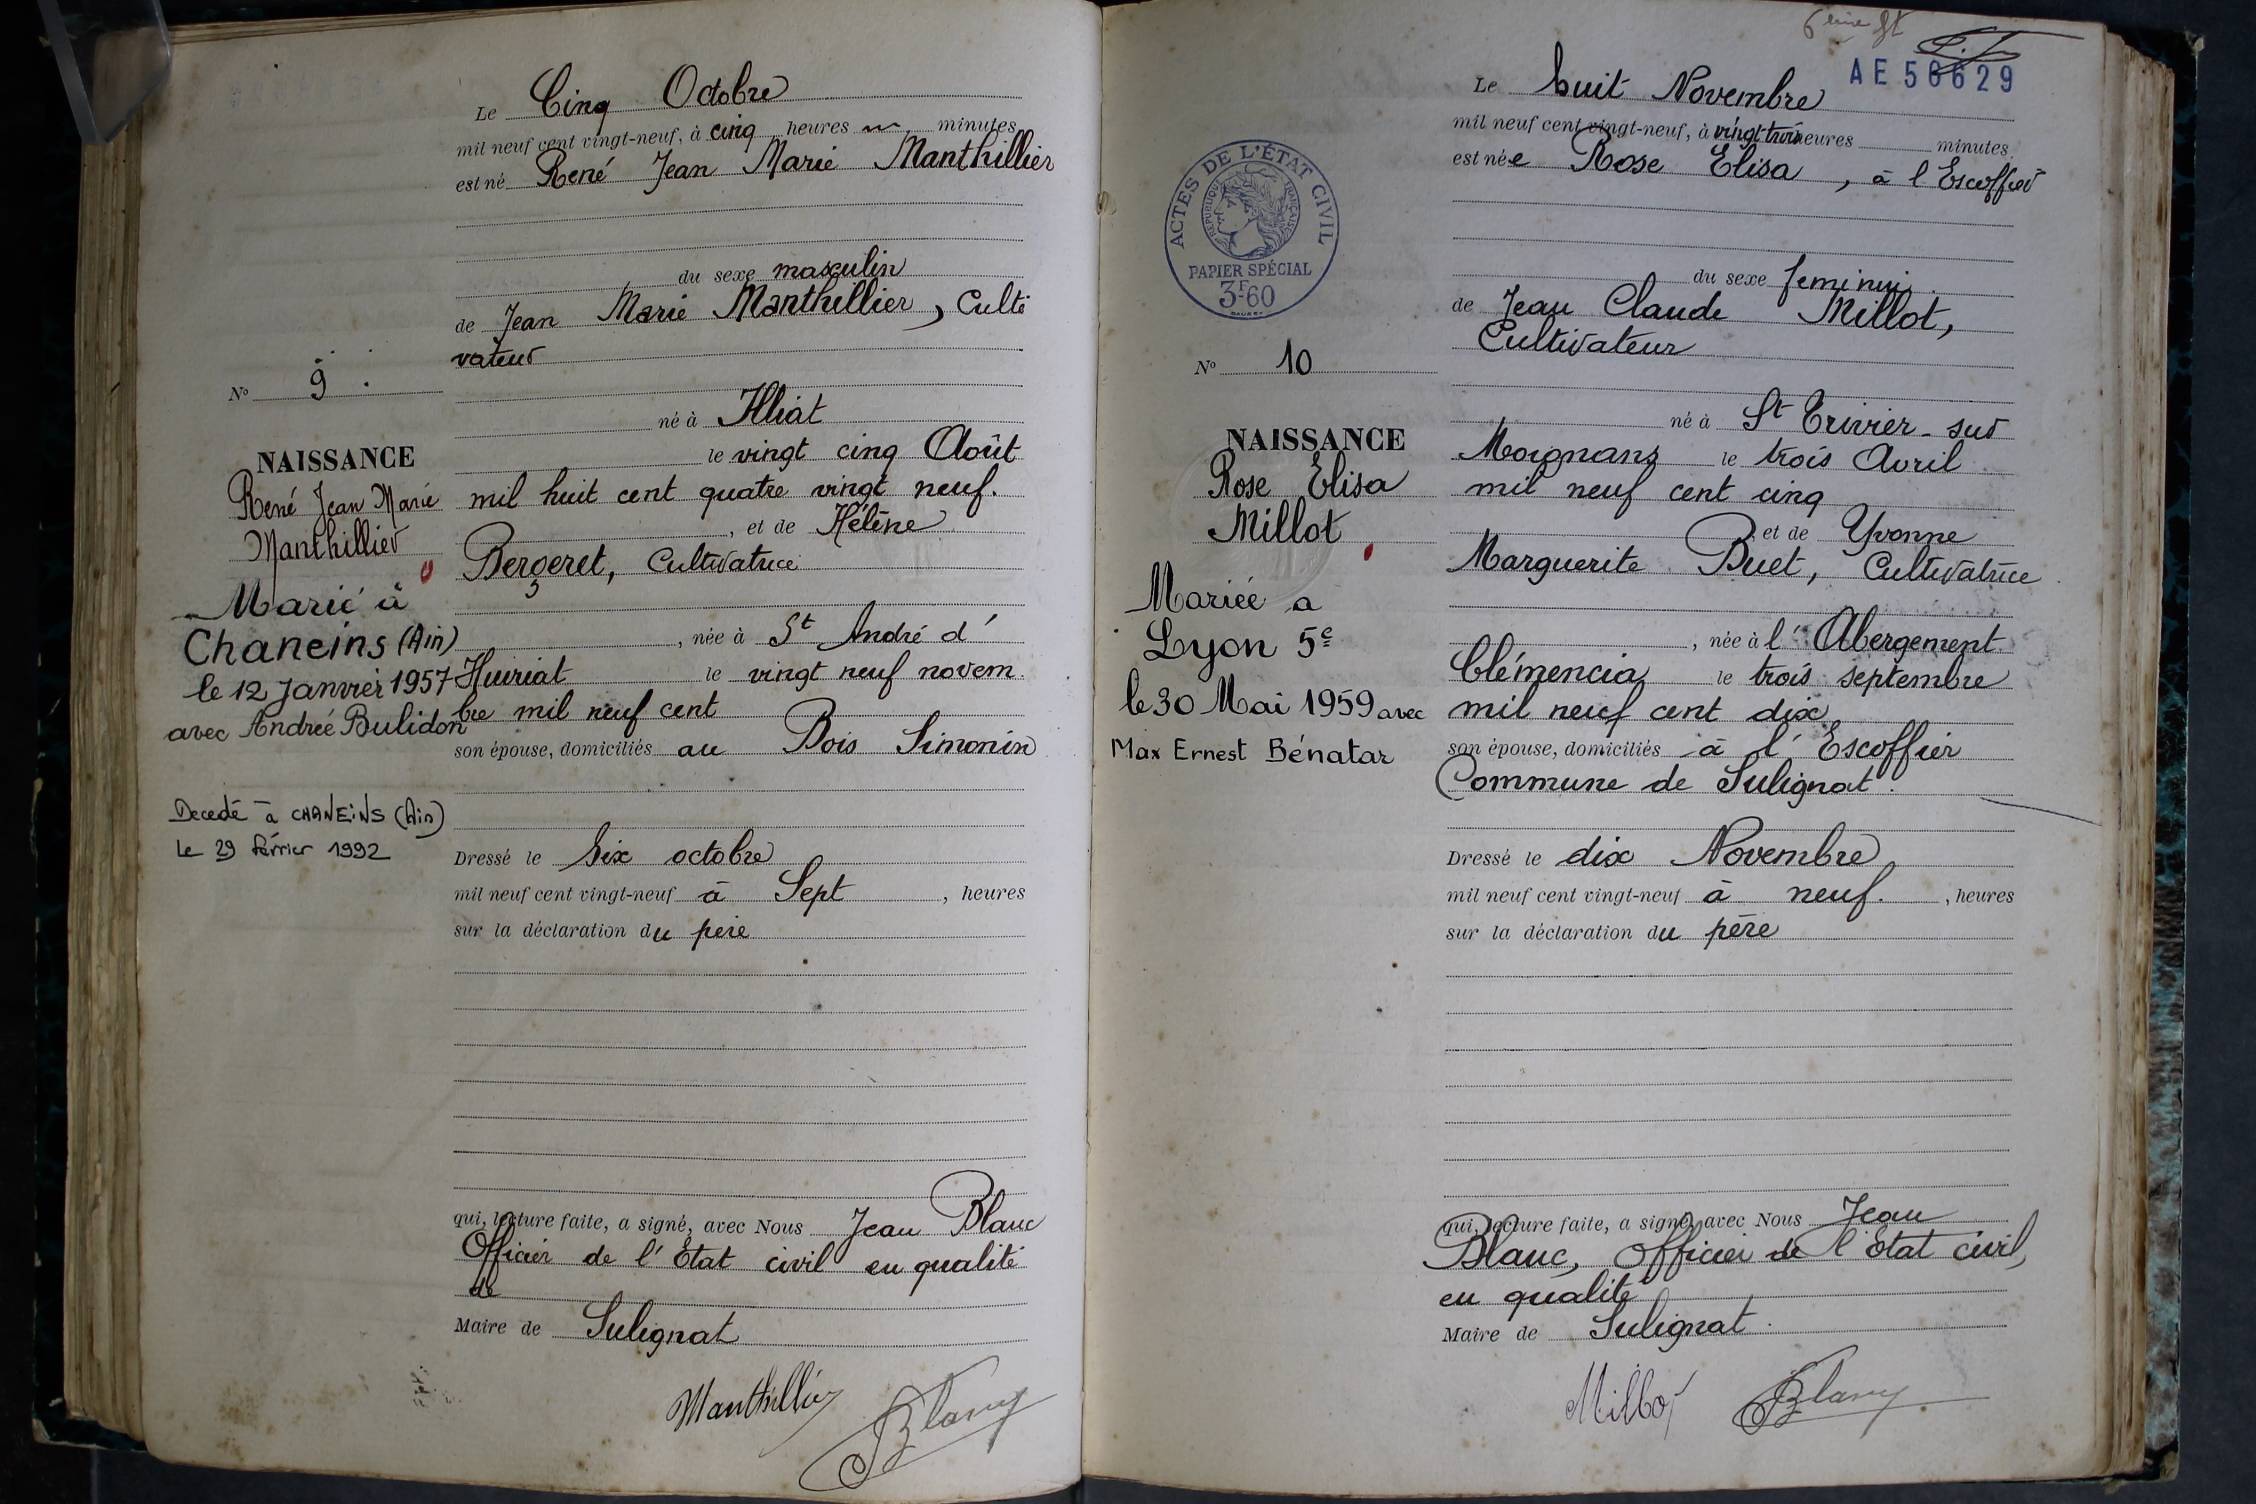 Le Cinq Octobre
mil neuf cent vingt-neuf, à cinq heures minutes
est né René Jean Marie Manthillier
du sexe masculin
de Jean Marie Manthillier, Culti
vateur
N° 9.
né à Illiat
NAISSANCE
le vingt cinq Août
René Jean Marie
mil huit cent quatre vingt neuf.
Manthillier
, et de Hélène
Bergeret, Cultivatrice
Marié à
Chaneins (Ain)
, née à St André d'
le 12 Janvier 1957
Huiriat le vingt neuf novem.
avec Andrée Bulidon
bre mil neuf cent
son épouse, domiciliés au Bois Simonin
Decedé à CHANEINS (Ain)
Le 29 février 1992
Dressé le Six octobre
mil neuf cent vingt-neuf à Sept , heures
sur la déclaration du père
qui, lecture faite, a signé, avec Nous Jean Blanc
Officier de l'Etat civil en qualité
de
Maire de Sulignat
Manthillier
JBlanc
6ème
AE 56629
Le huit Novembre
mil neuf cent vingt-neuf, à vingt-trois heures minutes
est née Rose Elisa, à l'Escoffier
ACTES DE L'ÉTAT CIVIL
RÉPUBLIQUE FRANÇAISE
PAPIER SPÉCIAL
3F60
du sexe feminin
de Jean Claude Millot,
Cultivateur
N° 10
né à St Trivier-sur
NAISSANCE
Moignans le trois Avril
Rose Elisa
mil neuf cent cinq
Millot
et de Yvonne
Marguerite Buet, Cultivatrice
Mariée a
Lyon 5e
, née à l'Abergement
Clémencia le trois septembre
le 30 Mai 1959 avec
mil neuf cent dix
Max Ernest Bénatar
son épouse, domiciliés à l'Escoffier
Commune de Sulignat.
Dressé le dix Novembre
mil neuf cent vingt-neuf à neuf. , heures
sur la déclaration du père
qui, lecture faite, a signé, avec Nous Jean
Blanc, Officier de l'Etat civil,
en qualité
Maire de Sulignat.
Millot
JBlanc